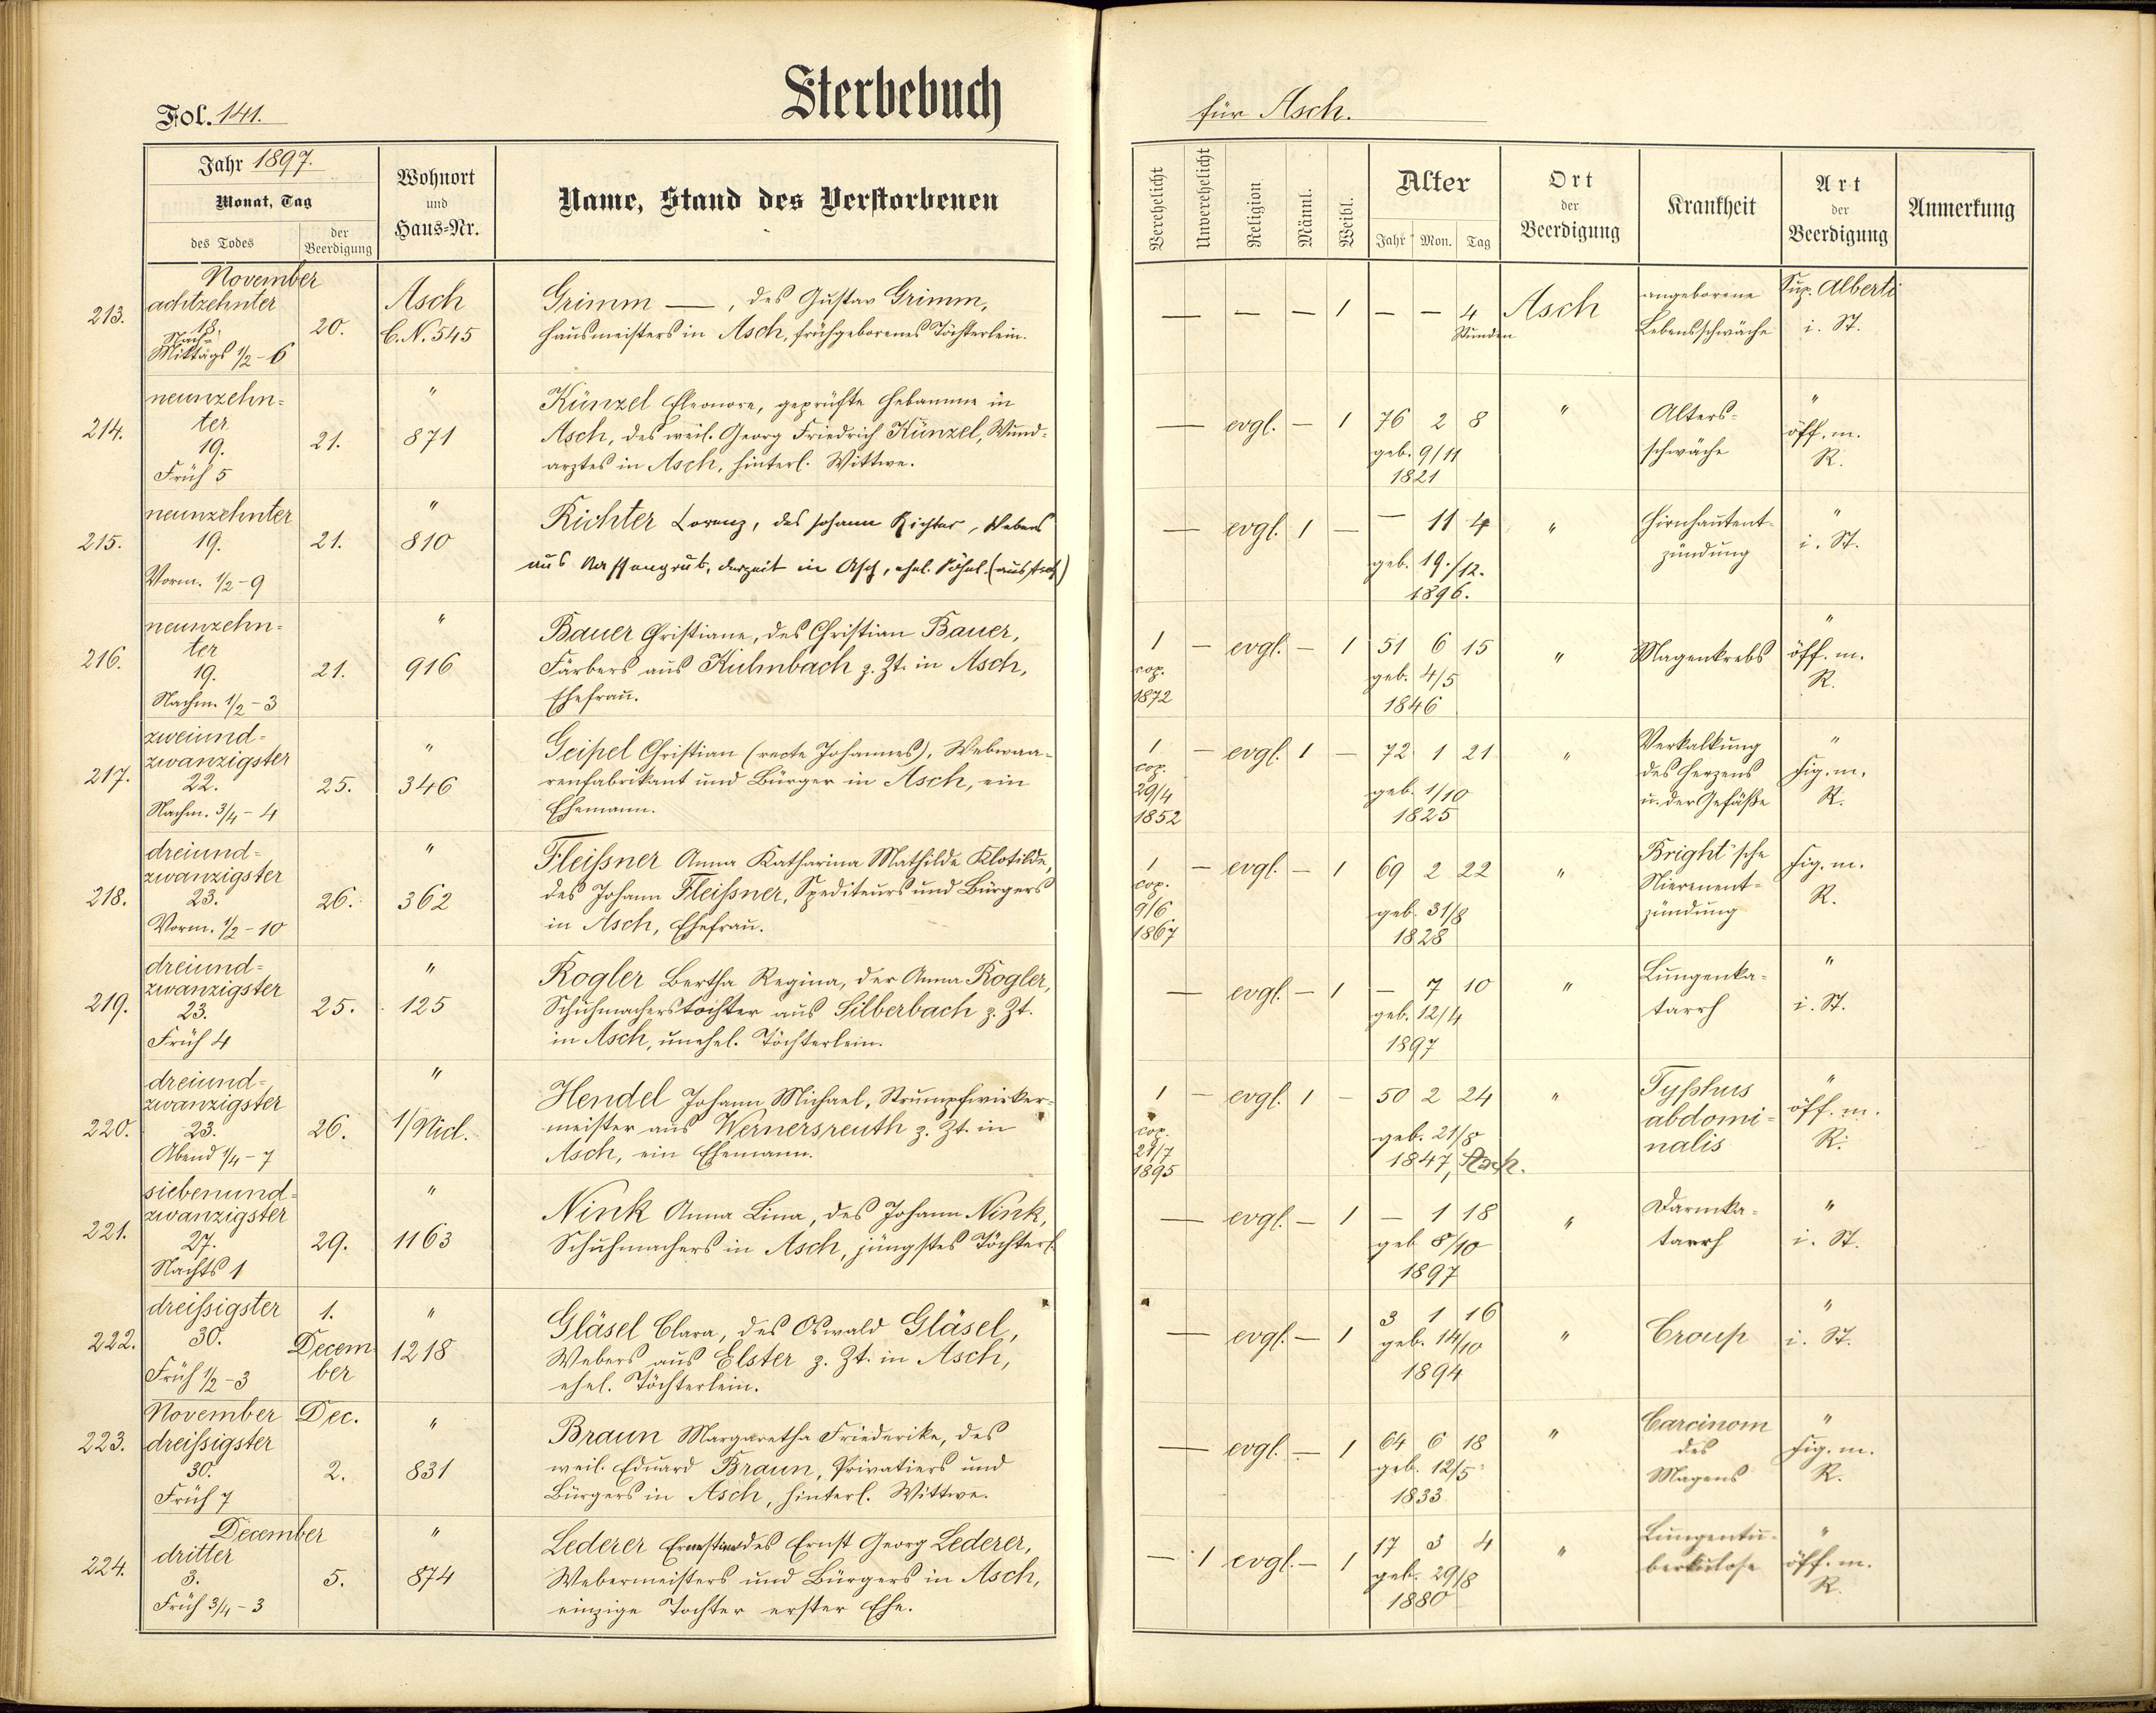 Sterbebuch
Fol. 141.
für Asch.
Jahr 1897.
Monat, Tag
des Todes
der Beerdigung
Wohnort
und
Haus=Nr.
Name, Stand des Verstorbenen
Verehelicht
Unverehelicht
Religion
Männl.
Weibl.
Alter
Jahr Mon. Tag
Ort
der
Beerdigung
Krankheit
Art
der
Beerdigung
Anmerkung
November
213. achtzehnter
18. 20.
Nach=
Mittags 1/2-6
Asch
C.N. 545
Grimm —, des Gustav Grimm,
Hausmeisters in Asch, frühgeborenes Töchterlein.
— — — 1 — — 4 Asch
Stunden
angeborene
Lebensschwäche
Sup. Alberti
i. St.
214. neunzehn=
ter
19. 21. " 871
Früh 5
Künzel Eleonore, geprüfte Hebamme in
Asch, des weil. Georg Friedrich Künzel, Wund=
arztes in Asch, hinterl. Wittwe.
— evgl. — 1 76 2 8 "
geb. 9/11
1821
Alters=
schwäche
"
öff. m.
R.
215. neunzehnter
19. 21. " 810
Vorm. 1/2-9
Richter Lorenz, des Johann Richter, Webers
aus Nassengrub, derzeit in Asch, ehel. Söhnl.
— evgl. 1 — — 11 4 "
geb. 19./12.
1896.
Hirnhautent=
zündung
"
i. St.
216. neunzehn=
ter
19. 21. " 916
Nachm. 1/2-3
Bauer Christiane, des Christian Bauer,
Färbers aus Kulmbach z. Zt. in Asch,
Ehefrau.
1 — evgl. — 1 51 6 15 "
cop.
1872
geb. 4/5
1846
Magenkrebs
"
öff. m.
R.
217. zweiund=
zwanzigster
22. 25. " 346
Nachm. 3/4-4
Geipel Christian (recte Johannes), Webwaa=
renfabrikant und Bürger in Asch, ein
Ehemann.
1 — evgl. 1 — 72 1 21 "
cop.
29/4
1852
geb. 1/10
1825
Verkalkung
des Herzens
u. der Gefäße
"
Fig. m.
R.
218. dreiund=
zwanzigster
23. 26. " 362
Vorm. 1/2-10
Fleißner Anna Katharina Mathilde Klotilde,
des Johann Fleißner, Spediteurs und Bürgers
in Asch, Ehefrau.
1 — evgl. — 1 69 2 22 "
cop.
9/6
1867
geb. 31/8
1828
Bright'sche
Nierenent=
zündung
Fig. m.
R.
219. dreiund=
zwanzigster
23. 25. " 125
Früh 4
Rogler Bertha Regina, der Anna Rogler,
Schuhmacherstochter aus Silberbach z. Zt.
in Asch, unehel. Töchterlein.
— evgl. — 1 — 7 10 "
geb. 12/4
1897
Lungenka=
tarrh
"
i. St.
220. dreiund=
zwanzigster
23. 26. " 1/Nicl.
Abend 1/4-7
Hendel Johann Michael, Strumpfwirker=
meister aus Wernersreuth z. Zt. in
Asch, ein Ehemann.
1 — evgl. 1 — 50 2 24 "
cop.
21/7
1895
geb. 21/8
1847, Asch.
Typhus
abdomi=
nalis
"
öff. m.
R.
221. siebenund=
zwanzigster
27. 29. " 1163
Nachts 1
Nink Anna Lina, des Johann Nink,
Schuhmachers in Asch, jüngstes Töchterl.
— evgl. — 1 — 1 18 "
geb 8/10
1897
Darmka=
tarrh
"
i. St.
222. dreißigster
30. 1. Decem=
ber " 1218
Früh 1/2-3
Gläsel Clara, des Oswald Gläsel,
Webers aus Elster z. Zt. in Asch,
ehel. Töchterlein.
— evgl. — 1 3 1 16 "
geb. 14/10
1894
Croup
"
i. St.
223. November Dec.
dreißigster
30. 2. " 831
Früh 7
Braun Margaretha Friederike, des
weil. Eduard Braun, Privatiers und
Bürgers in Asch, hinterl. Wittwe.
— evgl. — 1 64 6 18 "
geb. 12/5
1833
Carcinom
des
Magens
"
Fig. m.
R.
December
224. dritter
3. 5. " 874
Früh 3/4-3
Lederer Ernestine des Ernst Georg Lederer,
Webermeisters und Bürgers in Asch,
einzige Tochter erster Ehe.
— 1 evgl. — 1 17 3 4 "
geb. 29/8
1880
Lungentu=
berkulose
"
öff. m.
R.